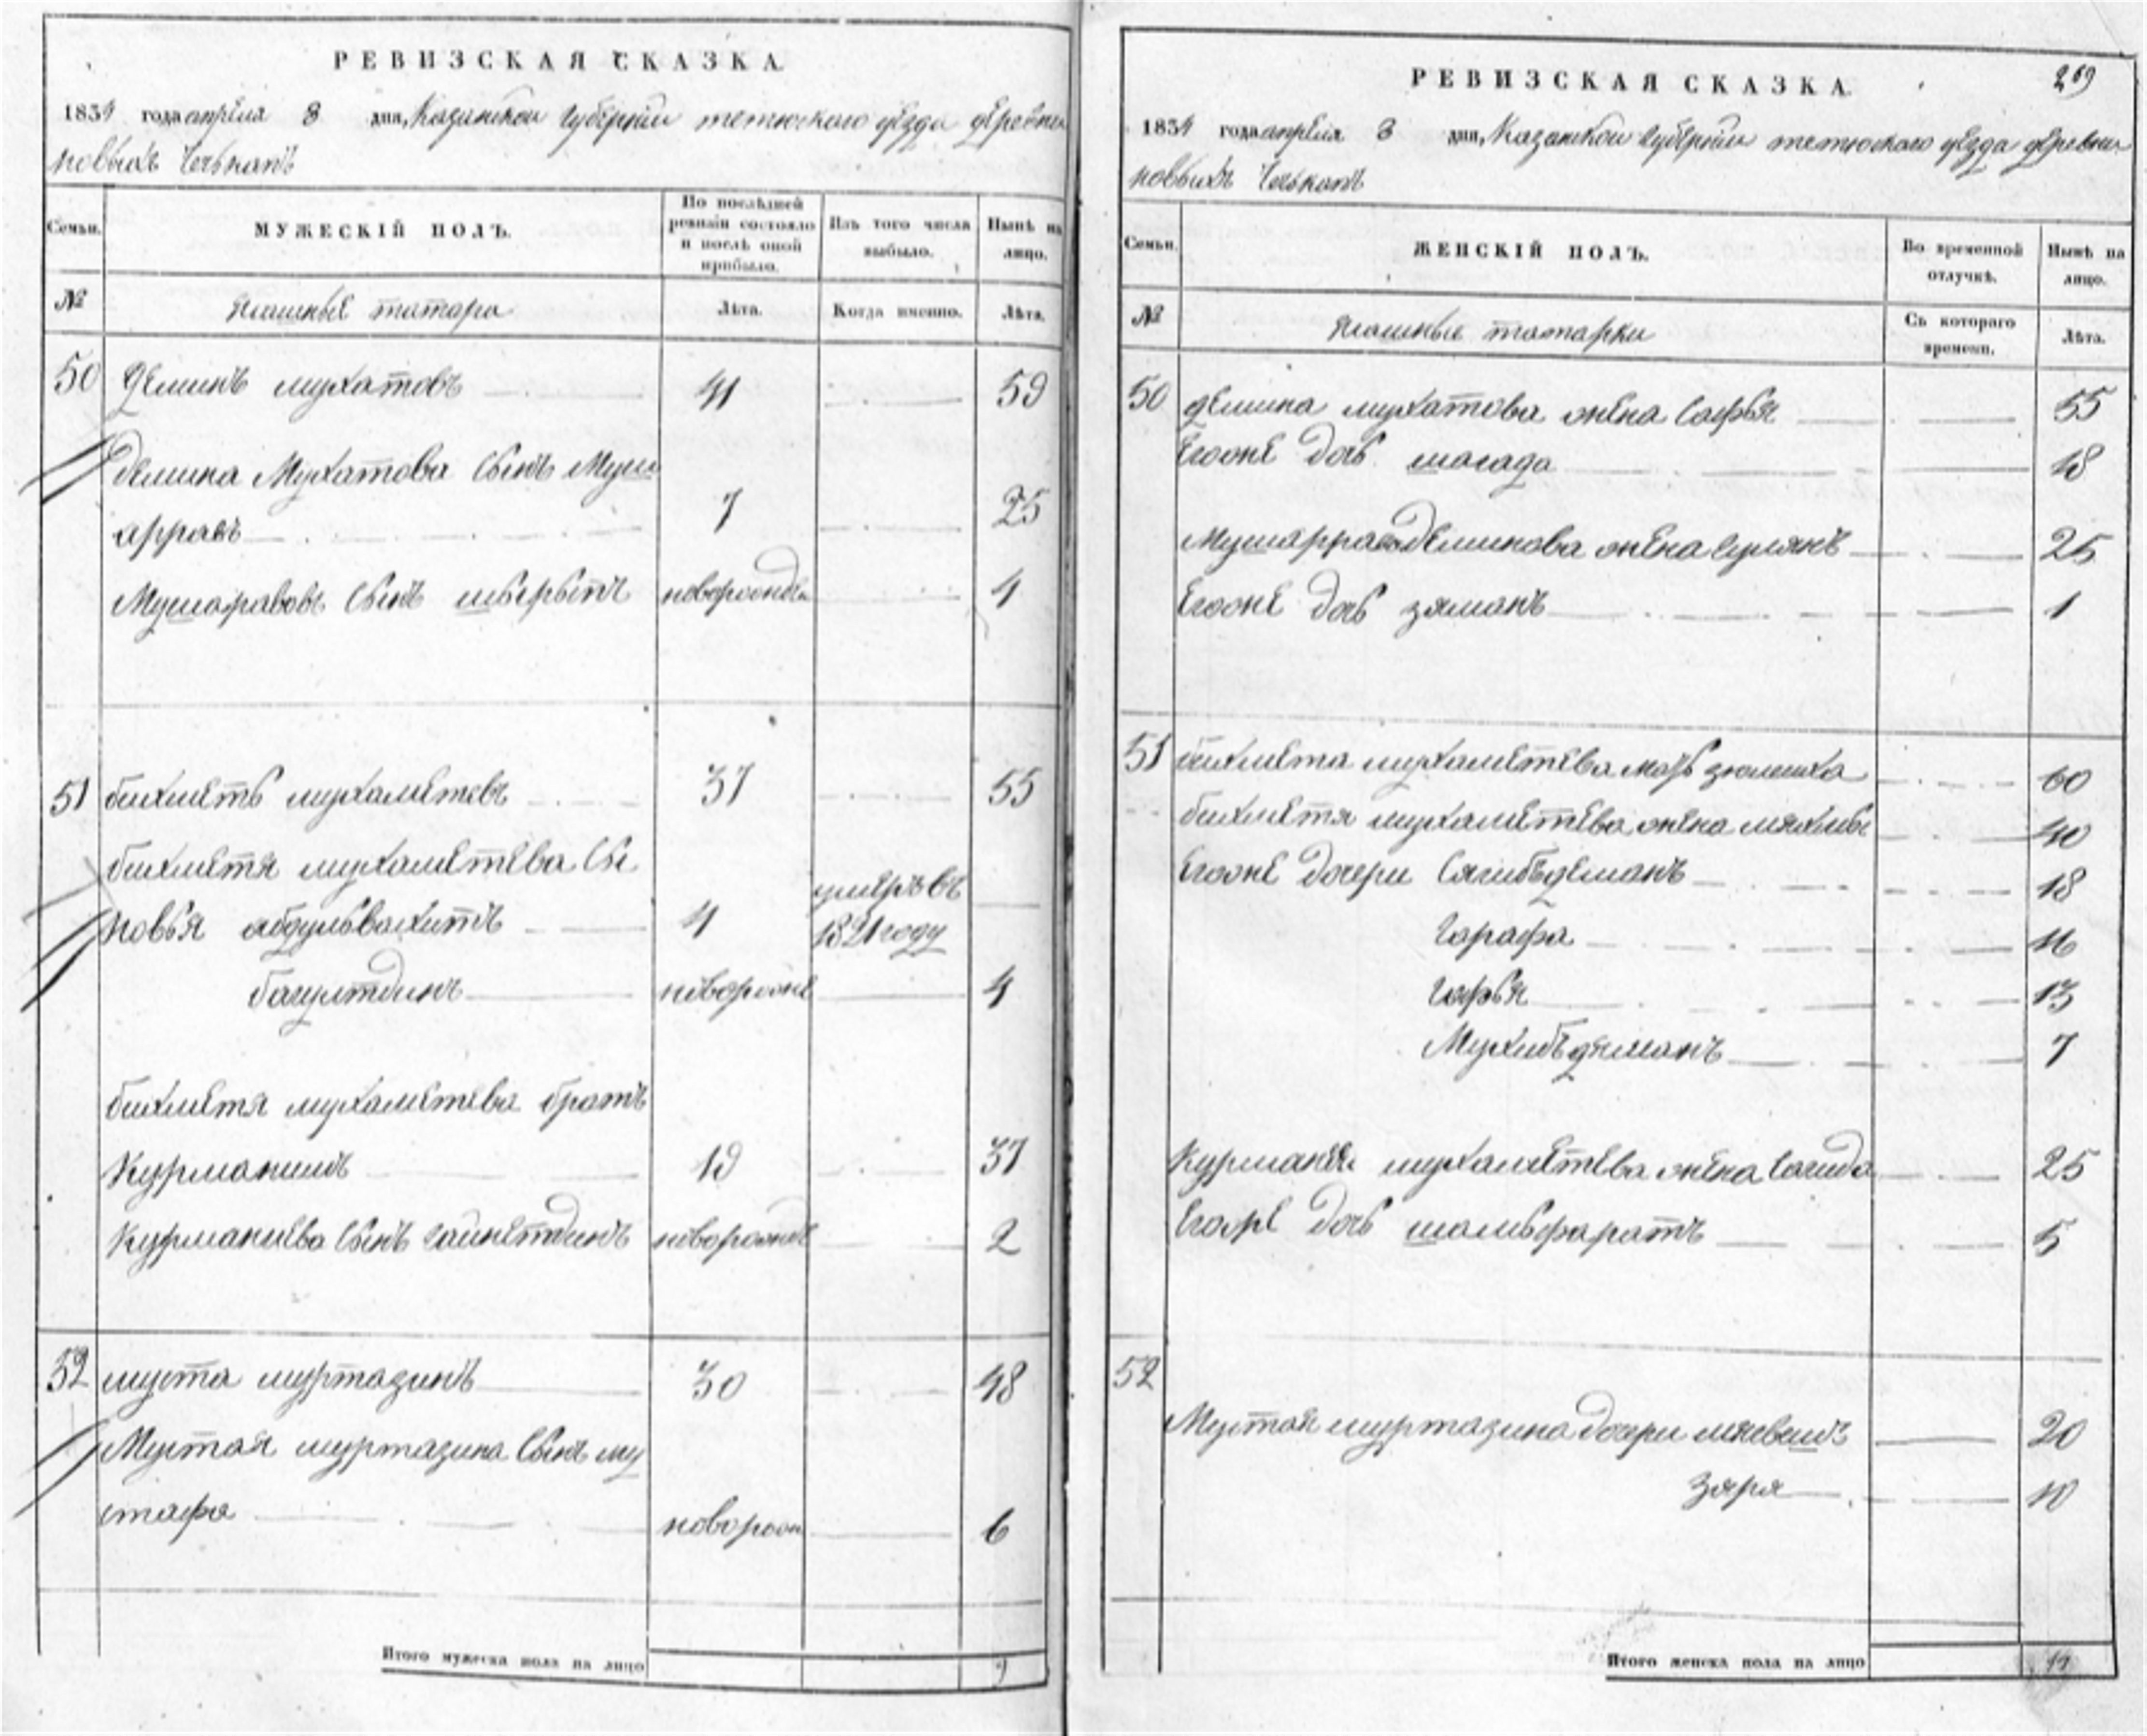 РЕВИЗСКАЯ СКАЗКА
1834 года апреля 3 дня, Казанской губернии тетюского уезда деревни
новыхъ
Семьи.
МУЖЕСКІЙ ПОЛЪ.
По послѣдней ревизіи состояло и послѣ оной прибыло.
Изъ того числа выбыло.
Нынѣ на лицо.
№
татара
Лѣта.
Когда именно.
Лѣта.
50 делинъ мухатовъ 41 59
делина Мухатова сынъ Муш
арравъ 7 25
Мушаравовъ сынъ новорожде 4
51 бикметь мухаметевъ 37 55
бикметя мухаметева сы
новья абдулвахитъ 4 умеръ въ 1821 году
багултдинъ новорож 4
бикметя мухаметева братъ
Курманши 19 37
сынъ гайнетдинъ новорожде 2
52 муста муртазинъ 30 48
Мустая муртазина сынъ му
стафа новорож 6
Итого мужеска пола на лицо 9
РЕВИЗСКАЯ СКАЗКА
269
1834 года апреля 3 дня, Казанской губернии тетюского уезда деревни
новыхъ
Семьи.
ЖЕНСКІЙ ПОЛЪ.
Во временной отлучкѣ.
Нынѣ на лицо.
№
татарки
Съ котораго времени.
Лѣта.
50 делина мухатова жена сафья 55
Егоже дочь шагада 18
жена 25
Егоже дочь зяманъ 1
51 бикмета мухаметева мать зюлиха 60
бикметя мухаметева жена 40
Егоже дочери 18
гарафа 16
гафья 13
7
мухаметева жена сагида 25
Егоже дочь шамсфаратъ 5
52
Мустая муртазина дочери 20
Зяря 10
Итого женска пола на лицо